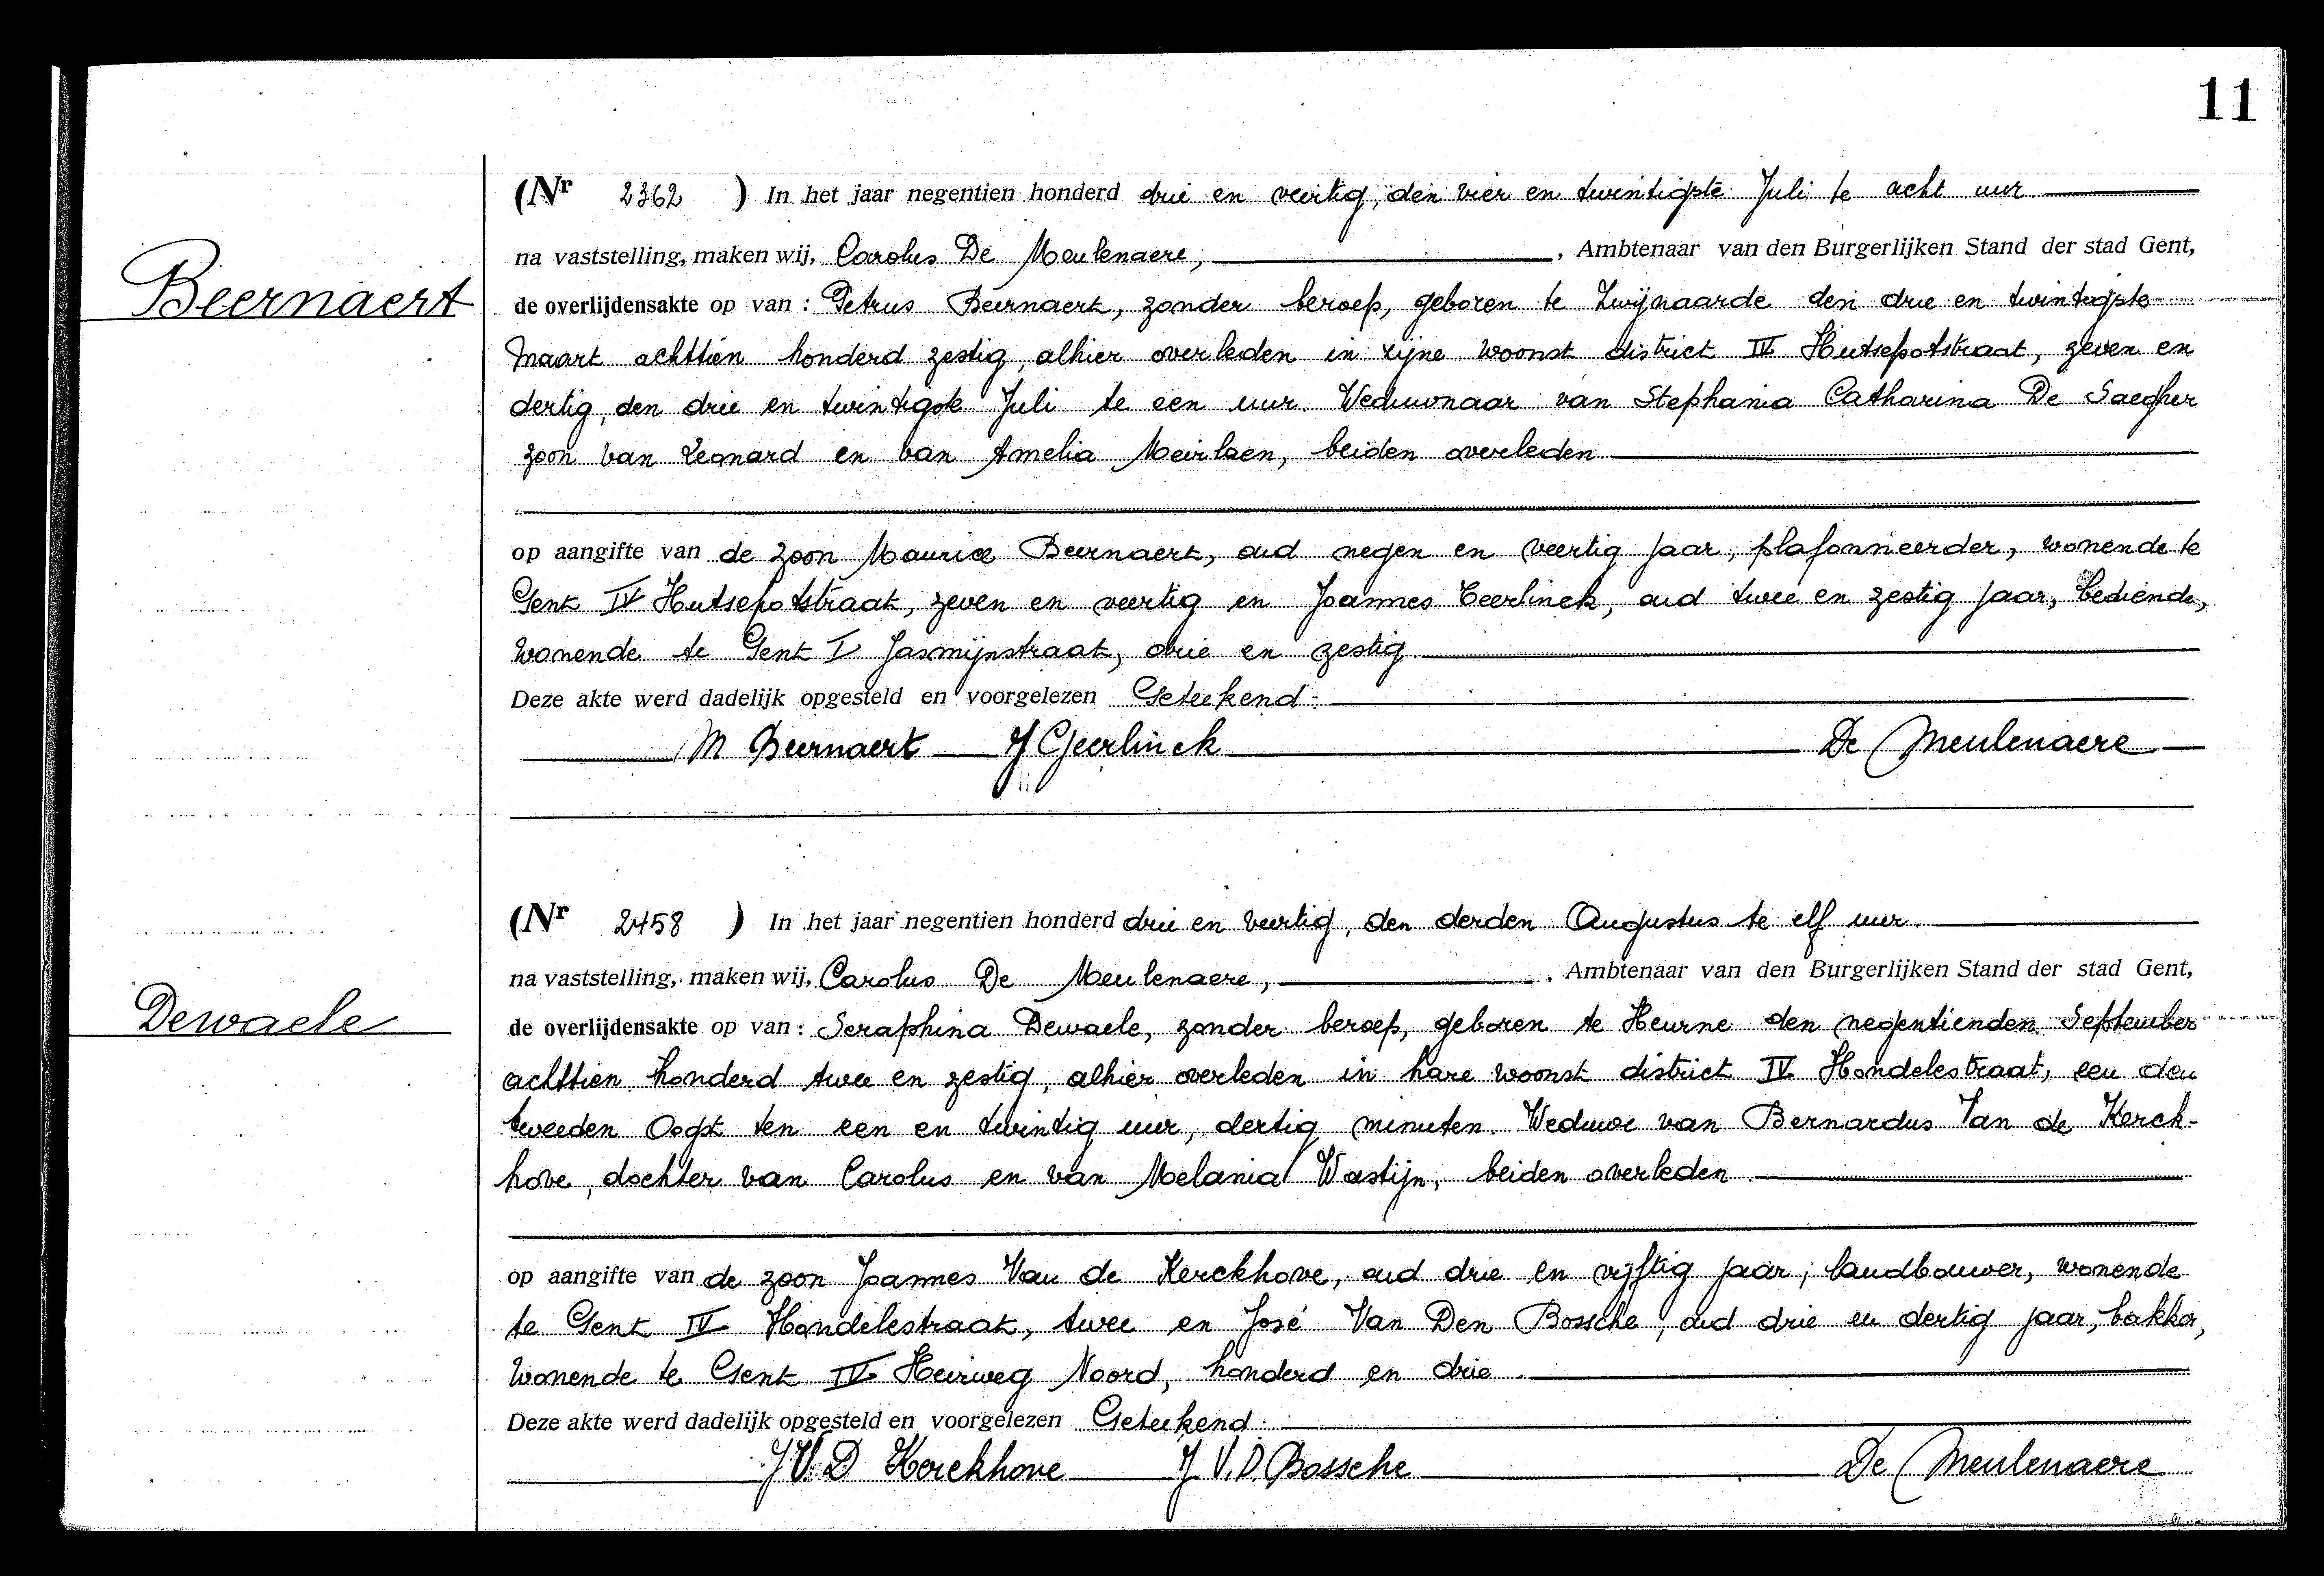 11
(Nr 2362 ) In het jaar negentien honderd drie en veertig, den vier en twintigste Juli te acht uur
na vaststelling, maken wij, Carolus De Meulenaere, , Ambtenaar van den Burgerlijken Stand der stad Gent,
Beernaert
de overlijdensakte op van : Petrus Beernaert, zonder beroep, geboren te Zwijnaarde den drie en twintigste
Maart achttien honderd zestig, alhier overleden in zijne woonst district IV Hutsepotstraat, zeven en
dertig, den drie en twintigste Juli te een uur. Weduwnaar van Stephania Catharina De Saegher
zoon van Leonard en van Amelia Meirlaen, beiden overleden
op aangifte van de zoon Maurice Beernaert, oud negen en veertig jaar, plafonneerder, wonende te
Gent IV Hutsepotstraat, zeven en veertig en Joannes Geerlinck, oud twee en zestig jaar, bediende,
wonende te Gent I Jasmijnstraat, drie en zestig
Deze akte werd dadelijk opgesteld en voorgelezen Geteekend:
M Beernaert J Geerlinck De Meulenaere
(Nr 2458 ) In het jaar negentien honderd drie en veertig, den derden Augustus te elf uur.
na vaststelling, maken wij, Carolus De Meulenaere, , Ambtenaar van den Burgerlijken Stand der stad Gent,
Dewaele
de overlijdensakte op van : Seraphina Dewaele, zonder beroep, geboren te Heurne den negentienden September
achttien honderd twee en zestig, alhier overleden in hare woonst district IV Hondelestraat, een den
tweeden Oogst ten een en twintig uur, dertig minuten. Weduwe van Bernardus Van de Kerck-
hove, dochter van Carolus en van Melania Wastijn, beiden overleden
op aangifte van de zoon Joannes Van de Kerckhove, oud drie en vijftig jaar, landbouwer, wonende
te Gent IV Hondelestraat, twee en José Van Den Bossche, oud drie en dertig jaar, bakker,
wonende te Gent IV Heirweg Noord, honderd en drie
Deze akte werd dadelijk opgesteld en voorgelezen Geteekend:
J V. D Kerckhove J V. D. Bossche De Meulenaere